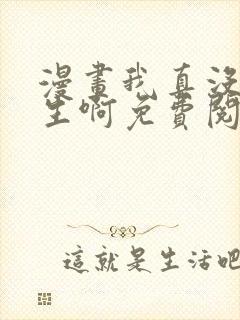 漫畫我真沒
生啊免費閱
這就是生活吧